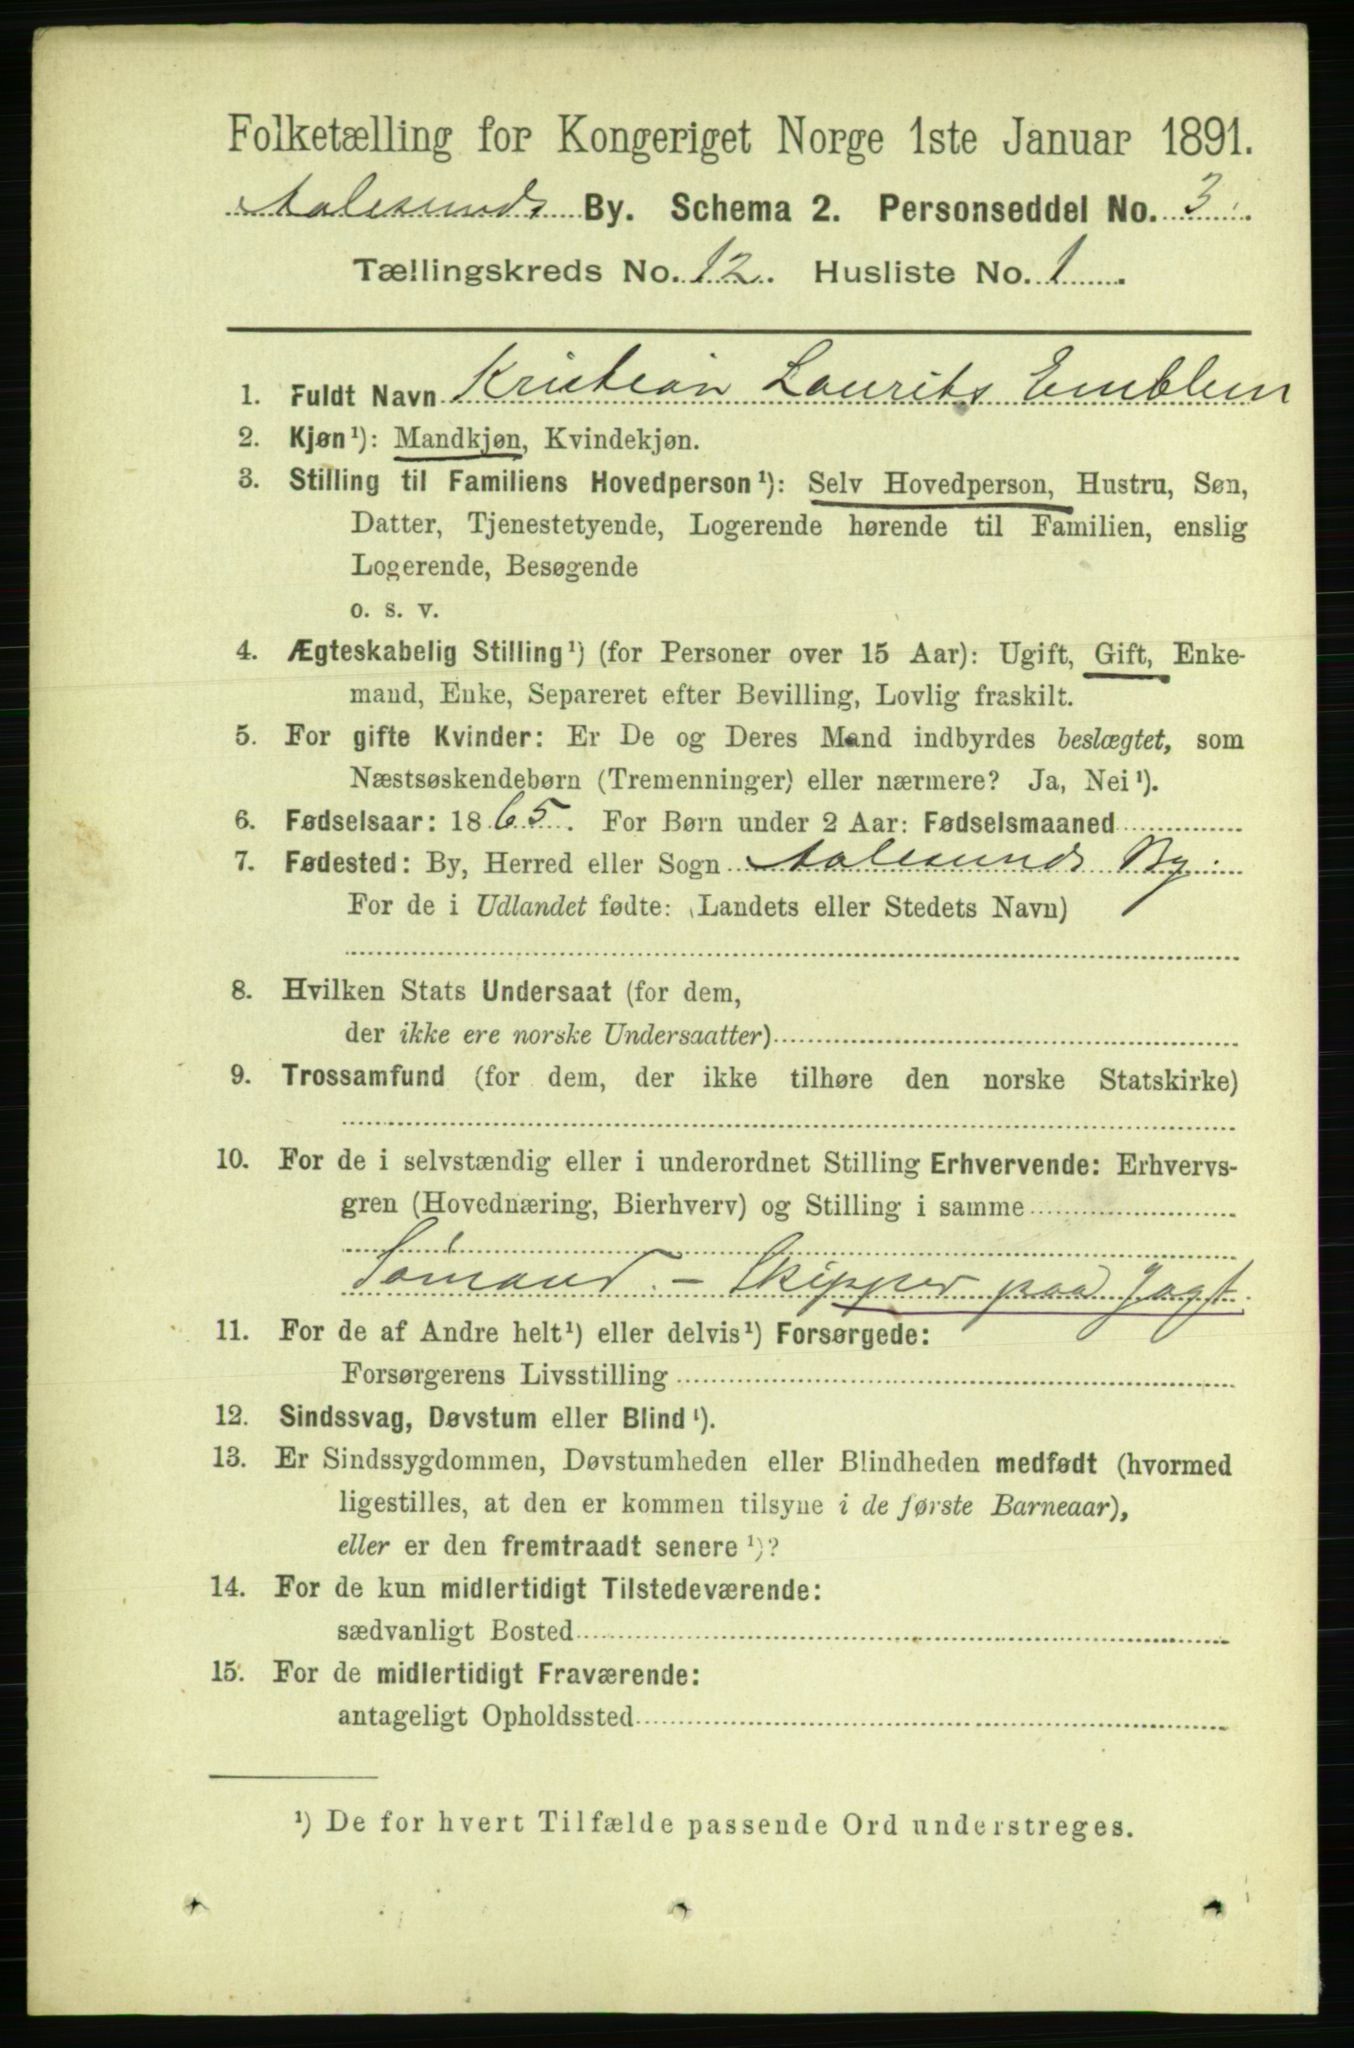 Folketælling for Kongeriget Norge 1ste Januar 1891.
Aalesunds By. Schema 2. Personseddel No. 3
Tællingskreds No. 12. Husliste No. 1
1. Fuldt Navn Kristian Laurits Emblem
2. Kjøn¹): Mandkjøn, Kvindekjøn.
3. Stilling til Familiens Hovedperson¹): Selv Hovedperson, Hustru, Søn,
Datter, Tjenestetyende, Logerende hørende til Familien, enslig
Logerende, Besøgende
o. s. v.
4. Ægteskabelig Stilling¹) (for Personer over 15 Aar): Ugift, Gift, Enke-
mand, Enke, Separeret efter Bevilling, Lovlig fraskilt.
5. For gifte Kvinder: Er De og Deres Mand indbyrdes beslægtet, som
Næstsøskendebørn (Tremenninger) eller nærmere? Ja, Nei¹).
6. Fødselsaar: 1865. For Børn under 2 Aar: Fødselsmaaned
7. Fødested: By, Herred eller Sogn Aalesunds By
For de i Udlandet fødte: (Landets eller Stedets Navn)
8. Hvilken Stats Undersaat (for dem,
der ikke ere norske Undersaatter)
9. Trossamfund (for dem, der ikke tilhøre den norske Statskirke)
10. For de i selvstændig eller i underordnet Stilling Erhvervende: Erhvervs-
gren (Hovednæring, Bierhverv) og Stilling i samme
Sømand. - Skipper paa Jagt.
11. For de af Andre helt¹) eller delvis¹) Forsørgede:
Forsørgerens Livsstilling
12. Sindssvag, Døvstum eller Blind¹).
13. Er Sindssygdommen, Døvstumheden eller Blindheden medfødt (hvormed
ligestilles, at den er kommen tilsyne i de første Barneaar),
eller er den fremtraadt senere¹)?
14. For de kun midlertidigt Tilstedeværende:
sædvanligt Bosted
15. For de midlertidigt Fraværende:
antageligt Opholdssted
¹) De for hvert Tilfælde passende Ord understreges.